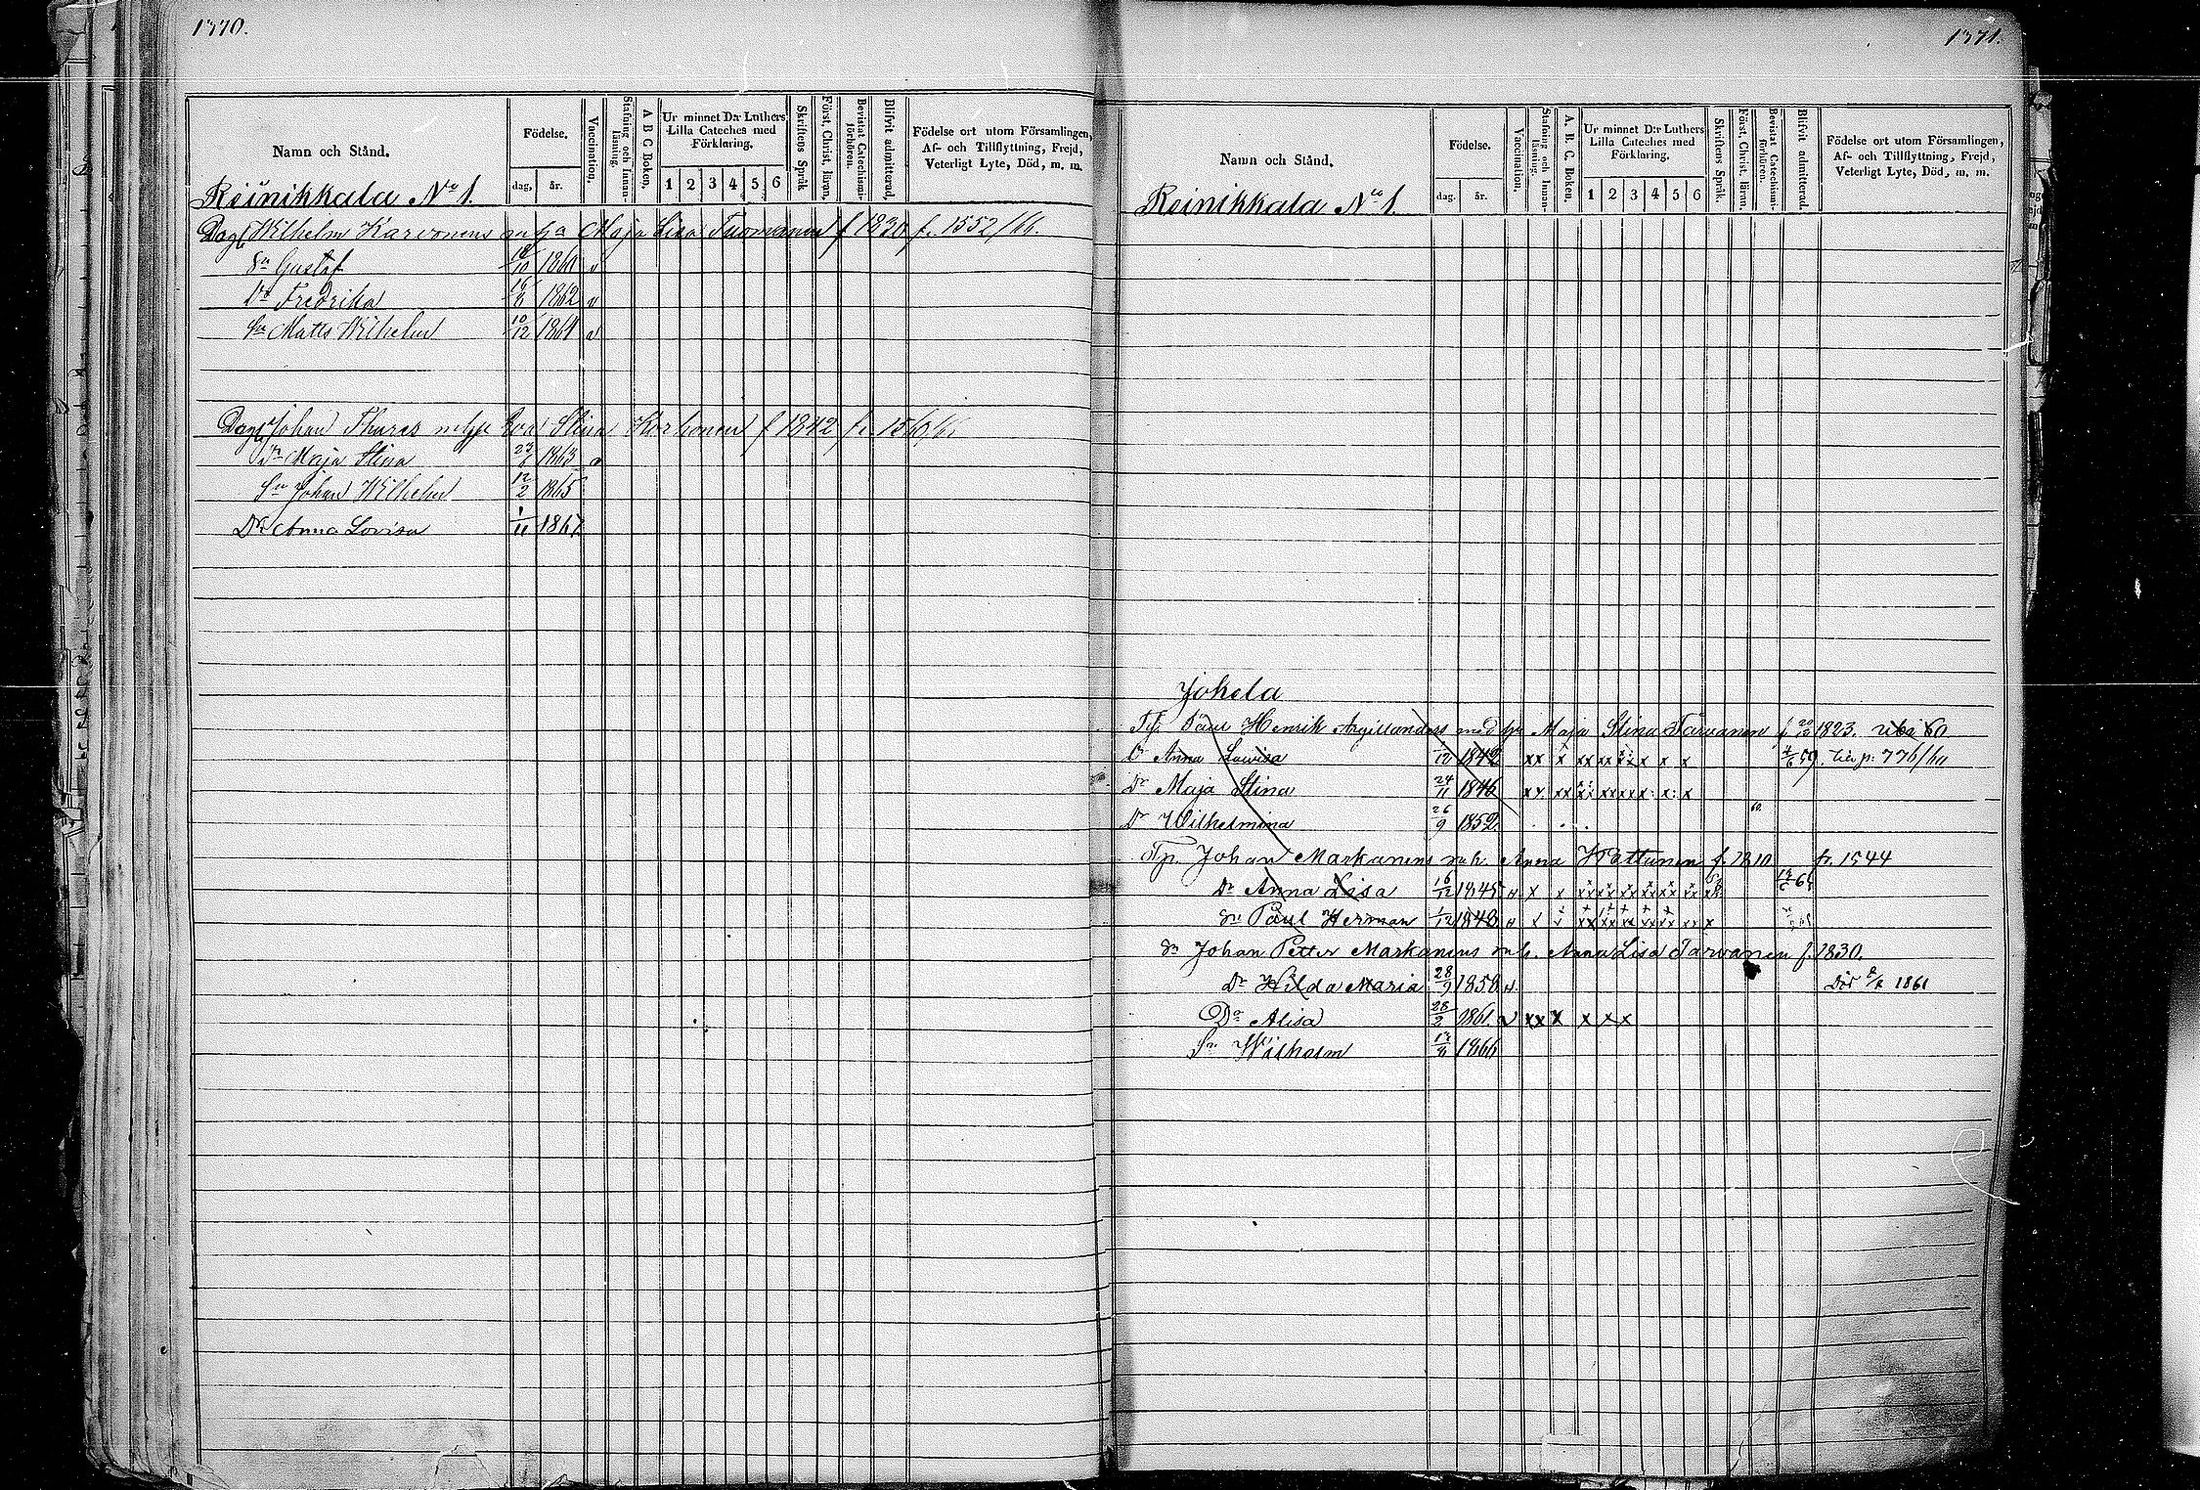 1370.
Namn och Stånd.
Födelse.
dag,
år.
Vaccination.
Stafning och Innan-läsning.
A B C Boken.
Ur minnet D:r Luthers Lilla Cateches med Förklaring.
1 2 3 4 5 6
Skriftens Språk
Först. Christ. läran.
Bevistat Catechismi-förhören.
Blifvit admitterad.
Födelse ort utom Församlingen, Af- och Tillflyttning, Frejd, Veterligt Lyte, Död, m. m.
Reinikkala No 1.
Wilhelm Karvonens Maja Lisa f 1820 fr. 1552/66.
Sn Gustaf 10 1860 v
Dr Fredrika 8 1862 v
Sn Matts Wilhelm 10/12 1864 v
Johan Thures Stina Korhonen f 1842
Dr Maja Stina 1863 v
Sn Johan Wilhelm 12/2 1865
Dr Anna Lovisa 1/11 1867.
1371.
Namn och Stånd.
Födelse.
dag.
år.
Vaccination.
Stafning och Innan-läsning.
A. B. C. Boken.
Ur minnet D:r Luthers Lilla Cateches med Förklaring.
1 2 3 4 5 6
Skriftens Språk.
Först. Christ. läran.
Bevistat Catechismi-förhören.
Blifvit admitterad.
Födelse ort utom Församlingen, Af- och Tillflyttning, Frejd, Veterligt Lyte, Död, m. m.
Reinikkala No 1.
Jokela
Paul Henrik Argillanders med Maja Stina Tarvanen f 1823.
Dr Anna Lowisa /12 1842 xx x xx xx x x x x 59. 776/60
Dr Maja Stina 24/11 1846
Dr Wilhelmina 26/9 1852. 60.
Johan Markanens Anna Wattunen f. 1810 fr. 1544
Dr Anna Lisa 16/12 1845
Sn Paul Herman 1/12 1843
Sn Johan Petter Markanens Anna Lisa Tarvanen f. 1830.
Dr Hilda Maria 28/9 1858 Död 1861
Dr Alisa 28/2 1861. v xx x x x x
Sn Wilhelm 8 1866